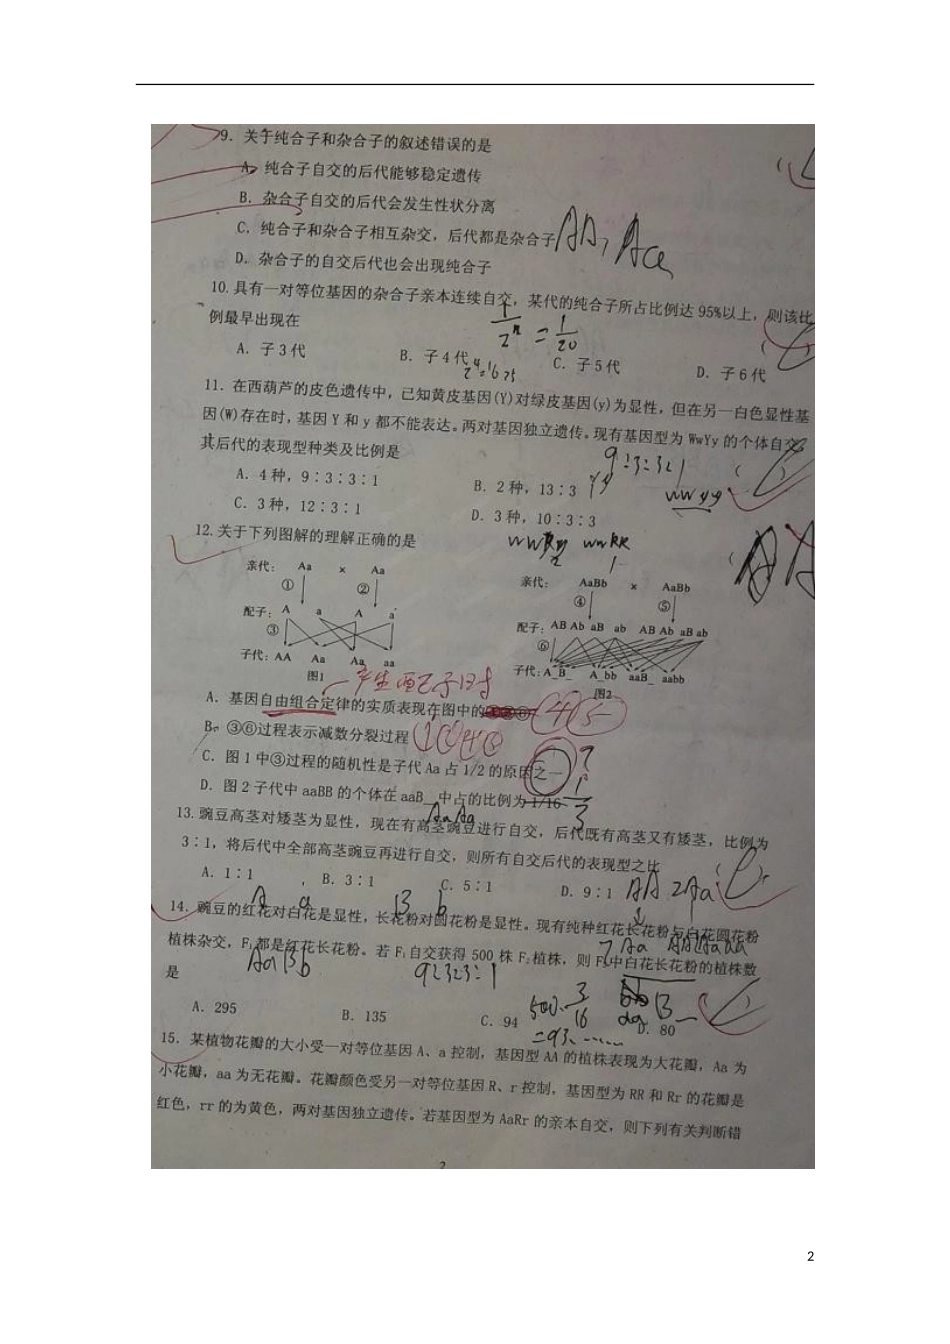 9. 关于纯合子和杂合子的叙述错误的是
A. 纯合子自交的后代能够稳定遗传
B. 杂合子自交的后代会发生性状分离
C. 纯合子和杂合子相互杂交，后代都是杂合子 AA, Aa
D. 杂合子的自交后代也会出现纯合子
10. 具有一对等位基因的杂合子亲本连续自交，某代的纯合子所占比例达 95%以上，则该比
例最早出现在
1/2ⁿ = 1/20
A. 子 3 代 B. 子 4 代 C. 子 5 代 D. 子 6 代
11. 在西葫芦的皮色遗传中，已知黄皮基因(Y)对绿皮基因(y)为显性，但在另一白色显性基
因(W)存在时，基因 Y 和 y 都不能表达。两对基因独立遗传。现有基因型为 WwYy 的个体自交，
其后代的表现型种类及比例是
9:3:3:1
A. 4 种，9∶3∶3∶1 B. 2 种，13∶3
wwyy
C. 3 种，12∶3∶1 D. 3 种，10∶3∶3
12. 关于下列图解的理解正确的是
亲代： Aa × Aa
① ②
配子： A a A a
③
子代：AA Aa Aa aa
图1
亲代： AaBb × AaBb
④ ⑤
配子：AB Ab aB ab AB Ab aB ab
⑥
子代：A_B_ A_bb aaB_ aabb
图2
产生配子时
A. 基因自由组合定律的实质表现在图中的 ④⑤
B. ③⑥过程表示减数分裂过程
C. 图 1 中③过程的随机性是子代 Aa 占 1/2 的原因之一
D. 图 2 子代中 aaBB 的个体在 aaB_中占的比例为 1/16 1/3
13. 豌豆高茎对矮茎为显性，现在有高茎豌豆进行自交，后代既有高茎又有矮茎，比例为
3∶1，将后代中全部高茎豌豆再进行自交，则所有自交后代的表现型之比
A. 1∶1 B. 3∶1 C. 5∶1 D. 9∶1 AA 2Aa
A a B b
14. 豌豆的红花对白花是显性，长花粉对圆花粉是显性。现有纯种红花长花粉与白花圆花粉
植株杂交，F₁都是红花长花粉。若 F₁自交获得 500 株 F₂植株，则 F₂中白花长花粉的植株数
是
AaBb 9:3:3:1
A. 295 B. 135 C. 94 D. 80
500· 3/16
=93.……
15. 某植物花瓣的大小受一对等位基因 A、a 控制，基因型 AA 的植株表现为大花瓣，Aa 为
小花瓣，aa 为无花瓣。花瓣颜色受另一对等位基因 R、r 控制，基因型为 RR 和 Rr 的花瓣是
红色，rr 的为黄色，两对基因独立遗传。若基因型为 AaRr 的亲本自交，则下列有关判断错
2
2